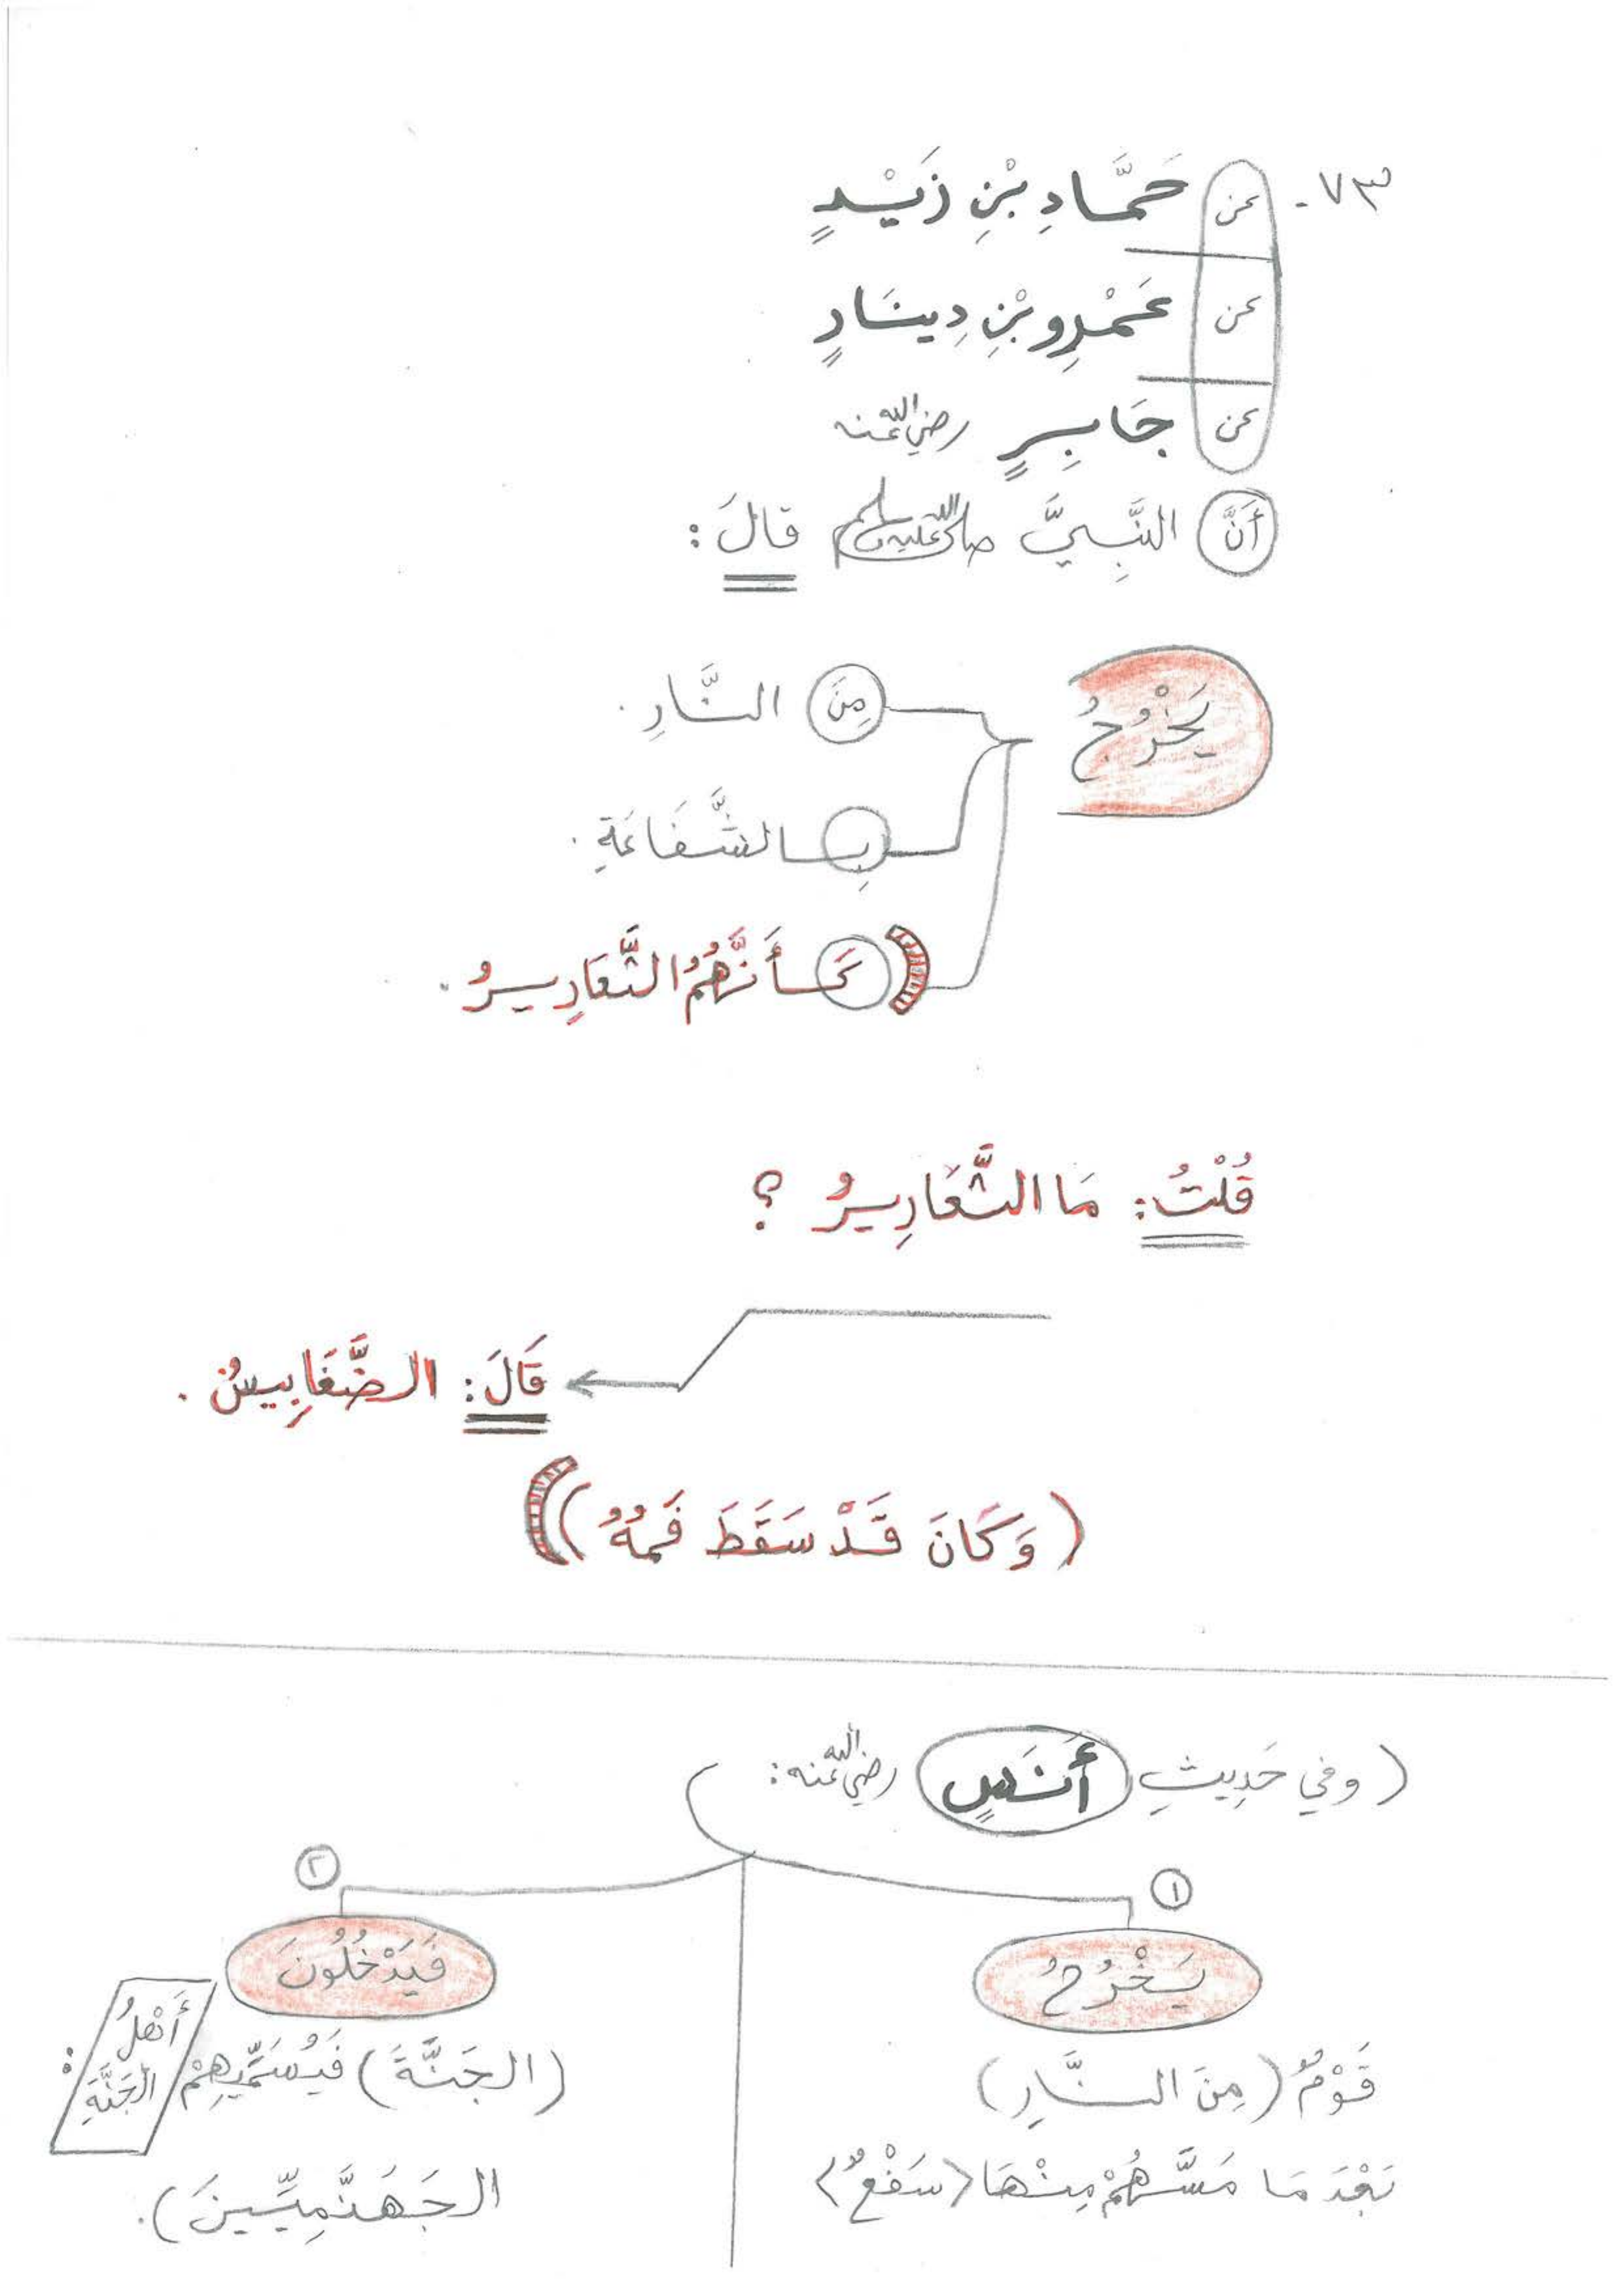 ٧٣- عن حَمَّادِ بْنِ زَيْدٍ
عن عَمْرِو بْنِ دِينَارٍ
عن جَابِرٍ رضي الله عنه
أَنَّ النَّبِيَّ صلى الله عليه وسلم قالَ:
يَخْرُجُ
مِنَ النَّارِ.
بِالشَّفَاعَةِ.
كَأَنَّهُمُ الثَّعَارِيرُ.
قُلْتُ: مَا الثَّعَارِيرُ؟
قَالَ: الضَّغَابِيسُ.
(وَكَانَ قَدْ سَقَطَ فَمُهُ)
(وفي حَدِيثِ أَنَسٍ رضي الله عنه:
١
يَخْرُجُ
قَوْمٌ (مِنَ النَّارِ)
بَعْدَ مَا مَسَّهُمْ مِنْهَا <سَفْعٌ>
٢
فَيَدْخُلُونَ
(الجَنَّةَ) فَيُسَمِّيهِمْ أَهْلُ الجَنَّةِ:
الجَهَنَّمِيِّينَ).